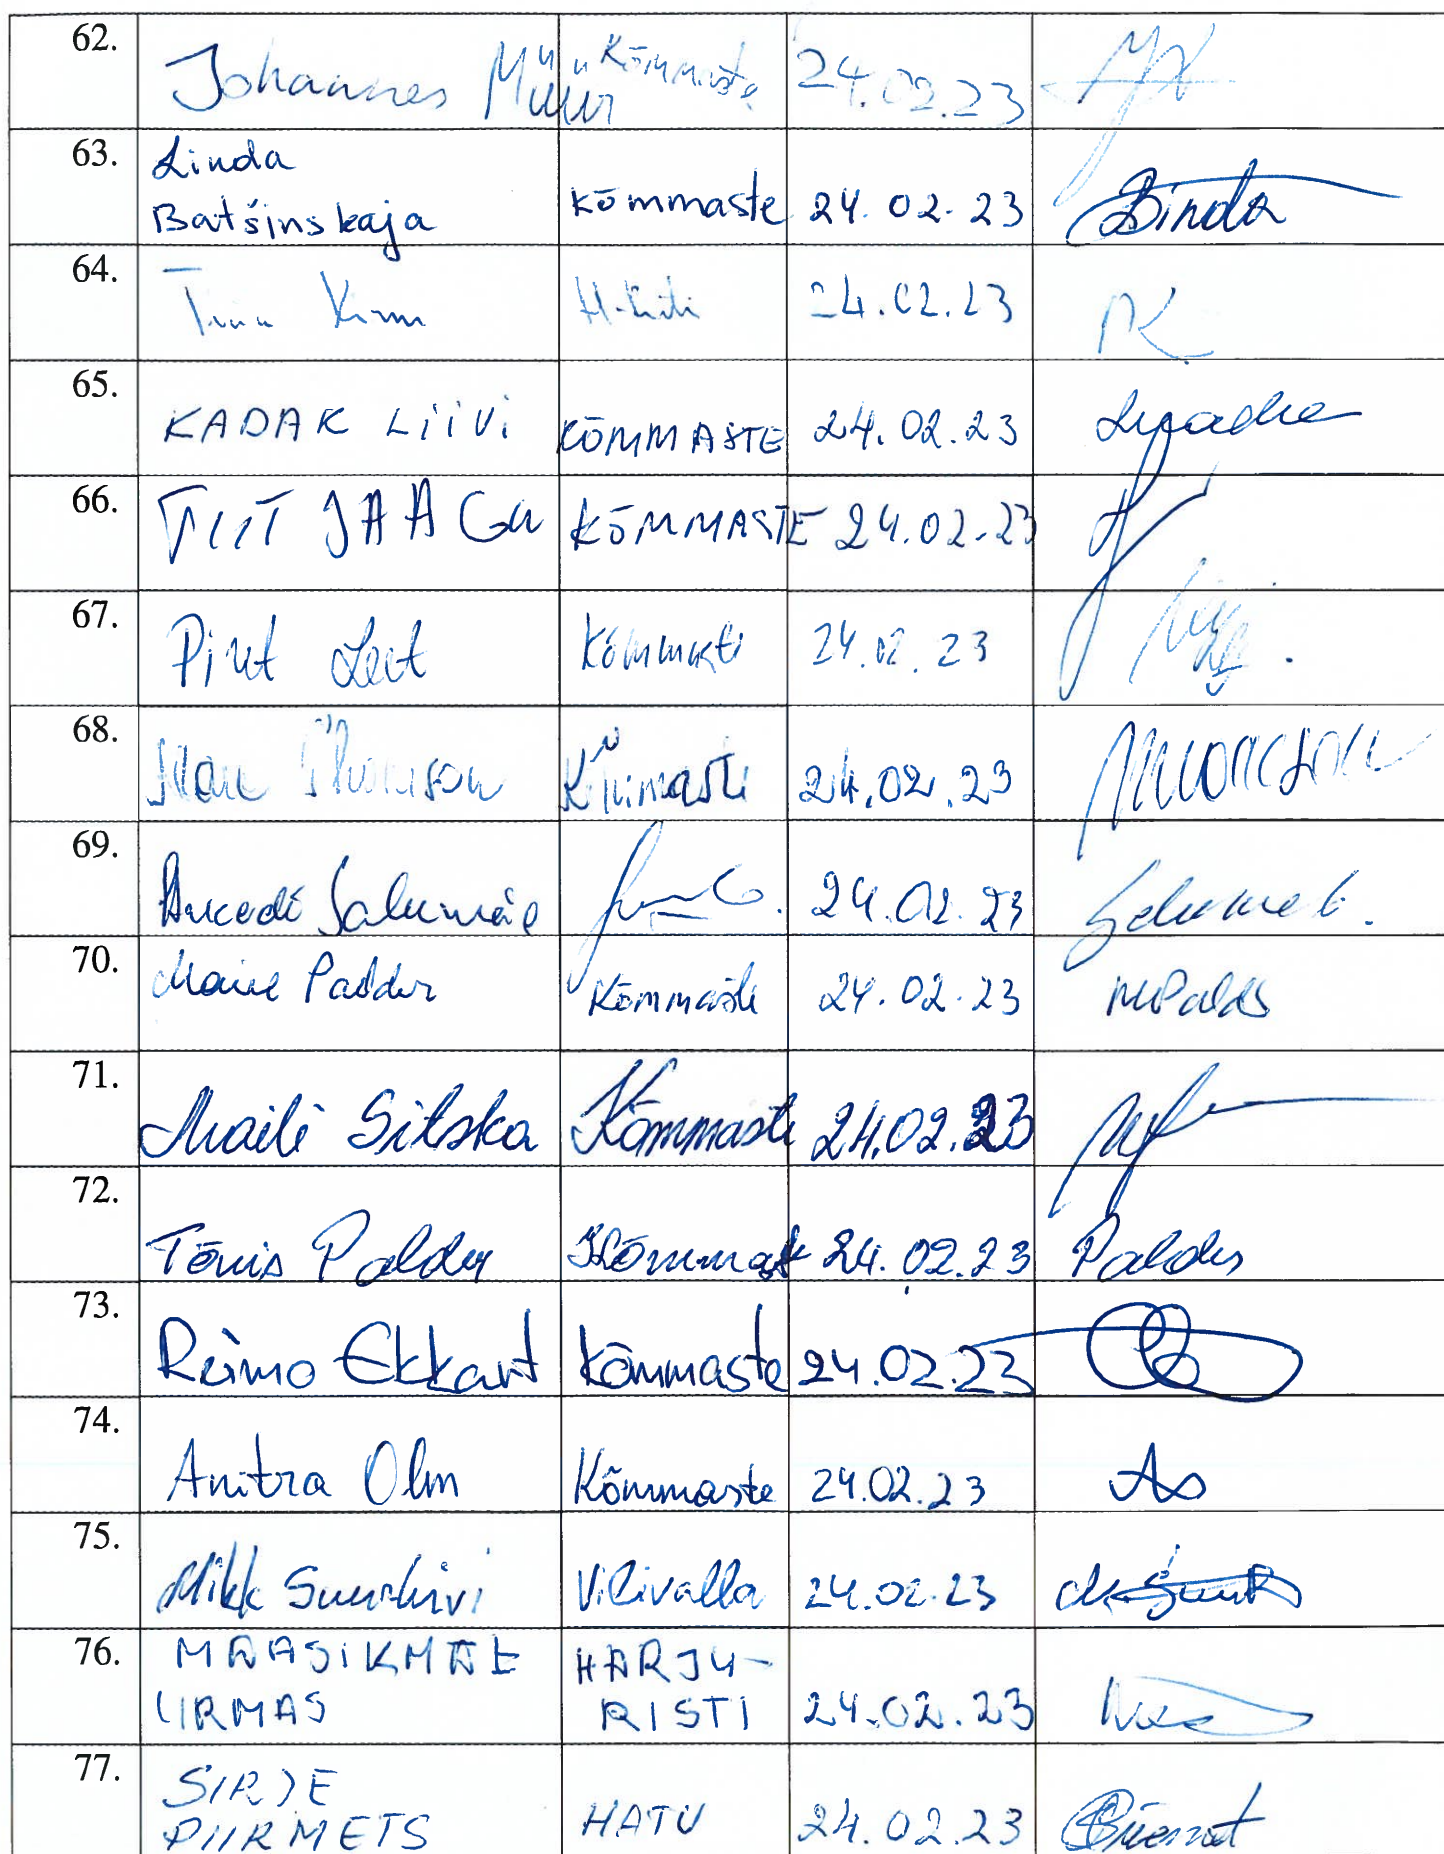 62. Johannes Müür Kõmmaste 24.02.23
63. Linda
Batšinskaja Kõmmaste 24.02.23 Linda
64. 24.02.23
65. KADAK LiiVi KÕMMASTE 24.02.23
66. TIIT JAAGU KÕMMASTE 24.02.23
67. Piret Leet Kõmmaste 24.02.23
68. Kõmmaste 24.02.23
69. Salumäe 24.02.23
70. Maive Palder Kõmmaste 24.02.23 MPalder
71. Maili Sitska Kõmmaste 24.02.23
72. Tõnis Palder Kõmmaste 24.02.23 Palder
73. Reimo Ekkart Kõmmaste 24.02.23
74. Anitra Olm Kõmmaste 24.02.23
75. Mikk Suurkivi Vilivalla 24.02.23
76. MAASIKMÄE HARJU-
URMAS RISTI 24.02.23
77. SIRJE
PIIRMETS HATU 24.02.23